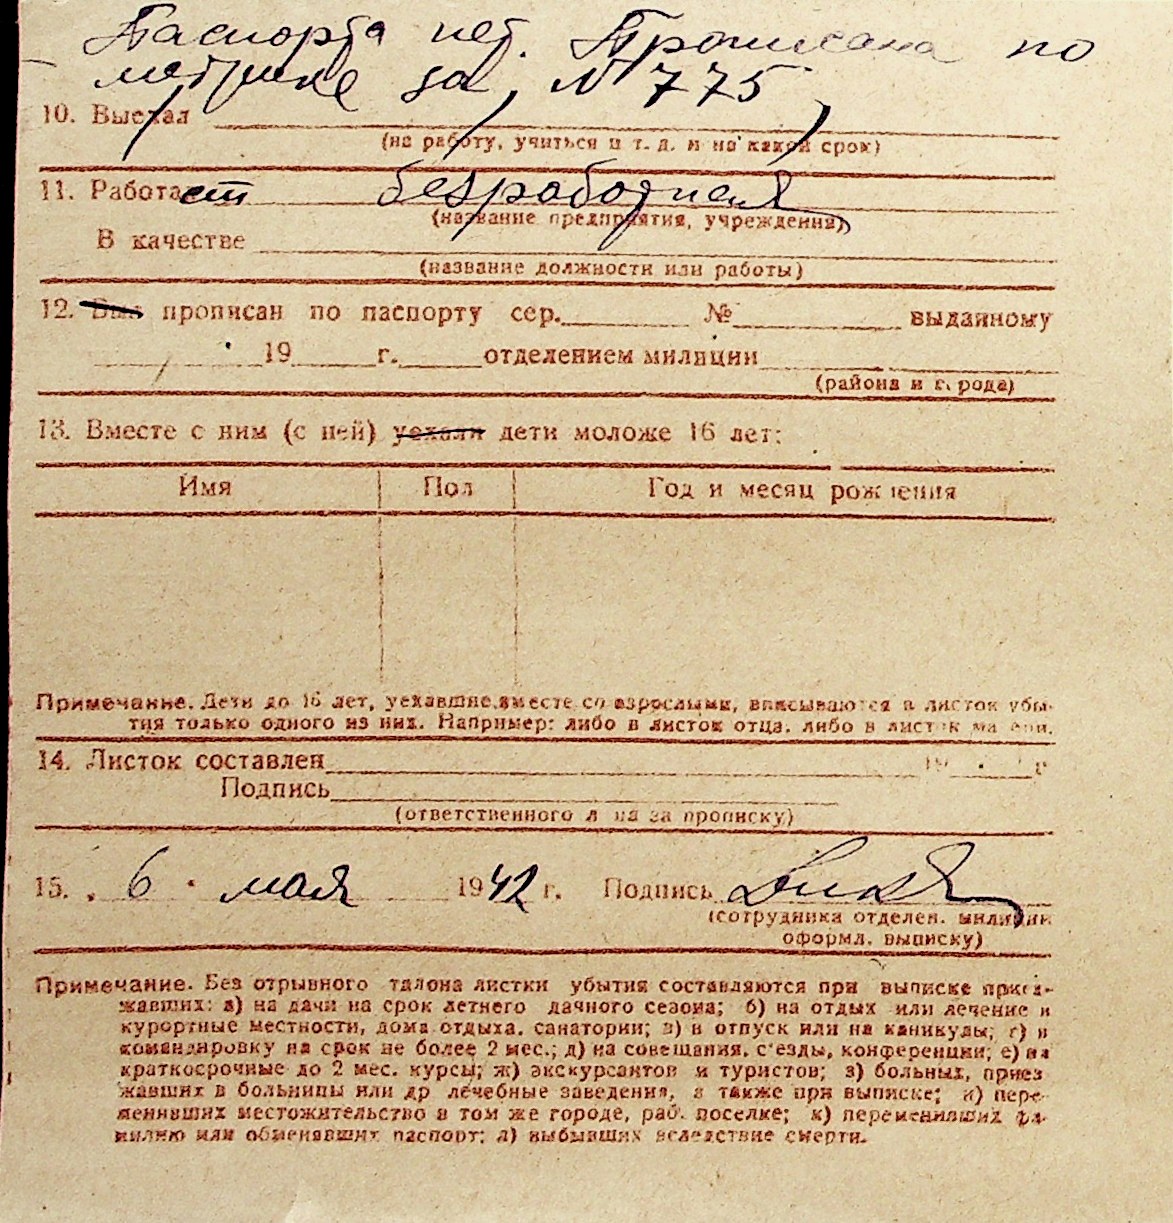 Паспорта нет. Прописана по
метрике за № 775
10. Выехал
(на работу, учиться и т. д. и на какой срок)
11. Работает безработная
(название предприятия, учреждения)
В качестве
(название должности или работы)
12. Был прописан по паспорту сер. № выданному
19 г. отделением милиции
(района и города)
13. Вместе с ним (с ней) уехали дети моложе 16 лет:
Имя Пол Год и месяц рождения
Примечание. Дети до 16 лет, уехавшие вместе со взрослыми, вписываются в листок убы-
тия только одного из них. Например: либо в листок отца, либо в листок матери.
14. Листок составлен 19 г
Подпись
(ответственного лица за прописку)
15. 6 мая 1942 г. Подпись
(сотрудника отделен. милиции
оформл. выписку)
Примечание. Без отрывного талона листки убытия составляются при выписке приез-
жавших: а) на дачи на срок летнего дачного сезона; б) на отдых или лечение в
курортные местности, дома отдыха, санатории; в) в отпуск или на каникулы; г) в
командировку на срок не более 2 мес.; д) на совещания, с'езды, конференции; е) на
краткосрочные до 2 мес. курсы; ж) экскурсантов и туристов; з) больных, приез
жавших в больницы или др лечебные заведения, а также при выписке; и) пере-
менивших местожительство в том же городе, раб. поселке; к) переменивших фа-
милию или обменявших паспорт; л) выбывших вследствие смерти.